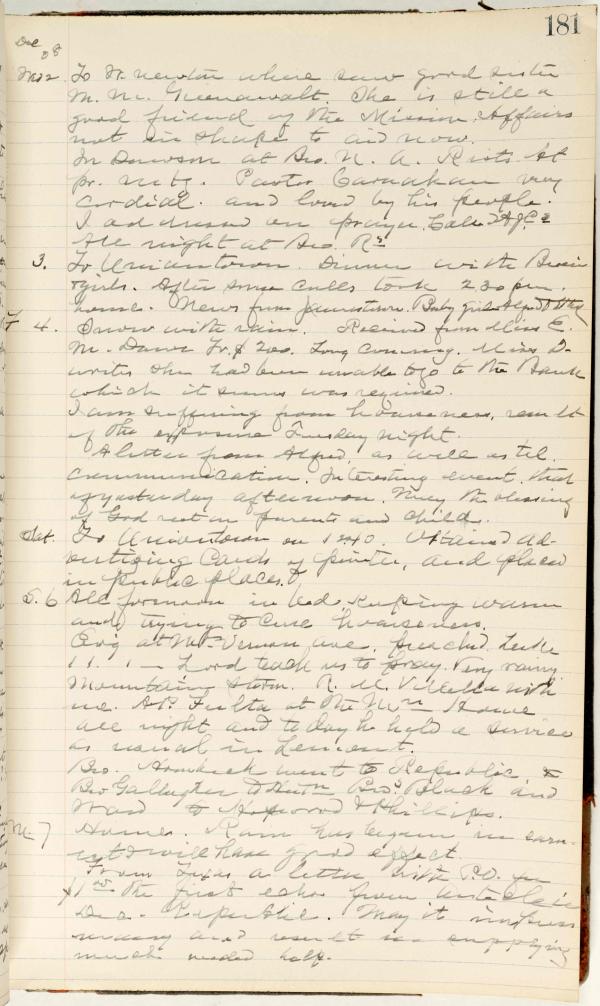 181
Dec
08
Wed 2. To W. Newton where saw good sister
M. M. Greenawalt. She is still a
good friend of the Mission. Affairs
not in shape to aid now.
In Dawson at Bro. N. A. Rists. At
pr. mtg. Pastor Carnahan very
cordial. and loved by his people.
I addressed on prayer.
All night at Bro. Rs.
3. To Uniontown. Dinner with
girls. After some calls took 2 30 pm.
home. News from Jamestown. Baby girl
4. Snow with rain. Received from Miss E.
M. Daws Tr. $200. Long coming. Miss D.
writes she had been unable to go to the Bank
which it seems was required.
I am suffering from hoarseness, result
of the exposure Tuesday night.
A letter from Alfred, as well as tel.
communication. Interesting event, that
of yesterday afternoon. May the blessing
of God rest on parents and child.
Sat. To Uniontown on 1240. Obtained ad-
vertizing Cards of printer, and placed
in public places.
S. 6 All forenoon in bed keeping warm
and trying to cure hoarseness.
Ev'g at Mt Vernon ave. preached. Luke
11. 1 — Lord teach us to pray. Very rainy.
Mountain storm. R. M. with
me. A. P. Fulta at the Mn Home
all night and today he held a service
as usual in Lemont.
Bro. went to Republic &
Bro Gallagher to Bros. Black and
Ward to Hopwood & Phillips.
M. 7 Home. Rain has begun in earn-
est & will have good effect.
From Texas a letter with P.O. for
$1 00 the first echo from article in
Dec. Republic. May it impress
many and result in supplying
much needed help.